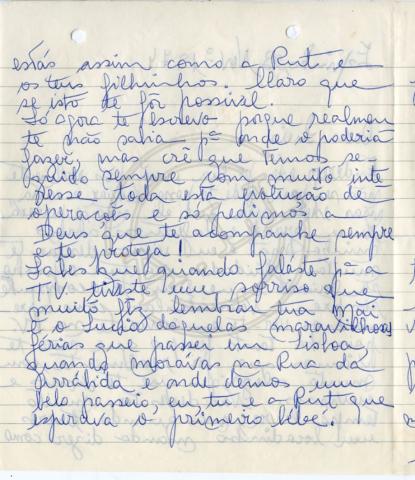 estás assim como a Rut e
os teus filhinhos. Claro que
se isto te fôr possivel.
Só agora te escrevo porque realmen
te não sabia pª onde o poderia
fazer, mas crê que temos se
guido sempre com muito inte
resse toda esta evolução de
operações e só pedimos a
Deus que te acompanhe sempre
e te proteja!
Sabes que quando falaste pª a
TV tiveste um sorriso que
muito fez lembrar tua Mãi
e o Lucio daquelas maravilhosas
férias que passei em Lisboa,
quando moravas na Rua da
Arrábida e onde demos um
belo passeio, eu, tu e a Rut que
esperava o primeiro bébé.